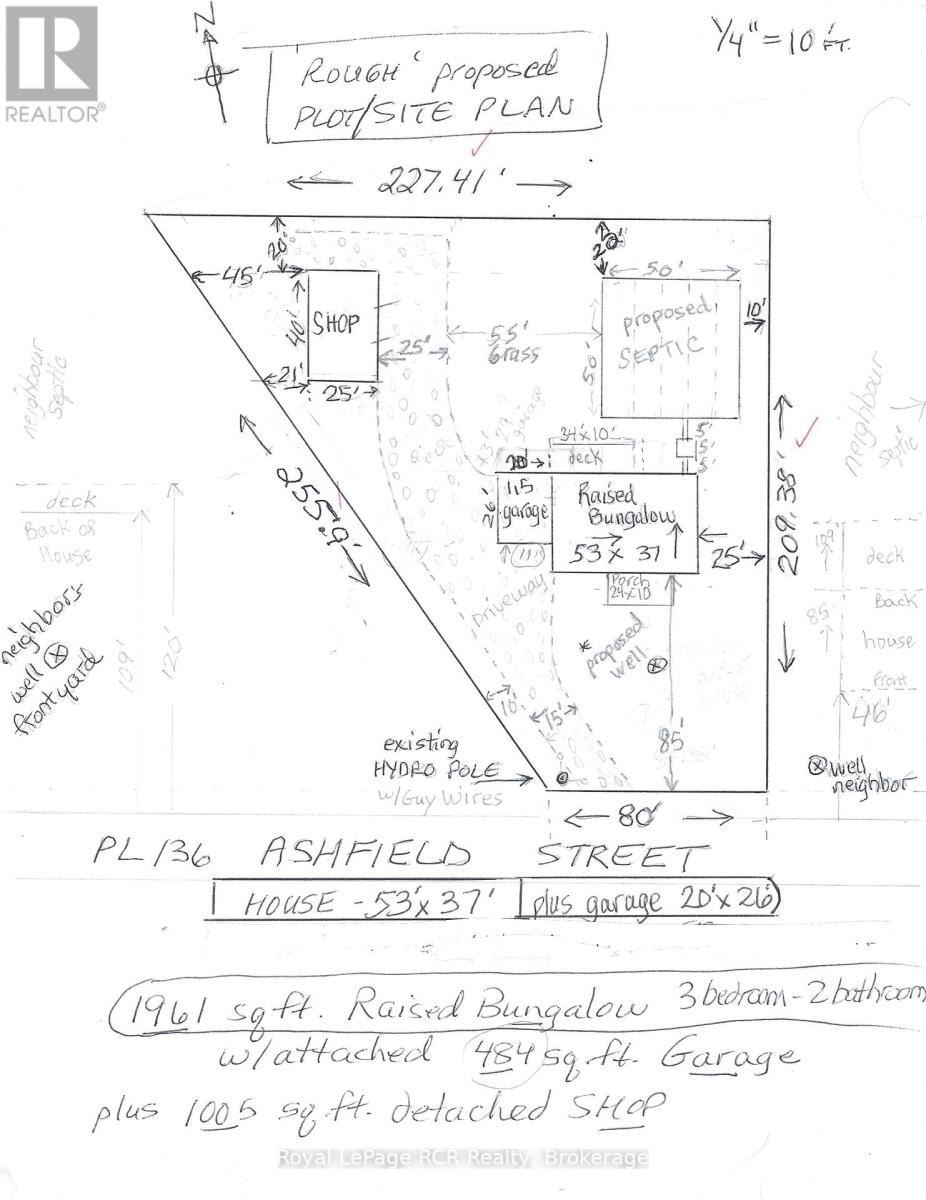 N
1/4" = 10 FT.
REALTOR®
"ROUGH" proposed
PLOT/SITE PLAN
227.41'
20'
45'
40'
SHOP
21'
25'
25'
55'
Grass
20'
50'
proposed
SEPTIC
50'
10'
neighbour
septic
neighbour
septic
garage
34'x10'
deck
5'
5'
5'
20'
26'
garage
Raised
Bungalow
53 x 37
Porch
24x10
25'
209.38'
255.9'
deck
Back of
House
109'
120'
neighbor's
well
frontyard
Driveway
* proposed
well
10'
15'
85'
109'
deck
Back
85'
house
front
46'
well
neighbor
existing
HYDRO POLE
w/Guy Wires
80'
PL 136 ASHFIELD STREET
HOUSE - 53'x 37' plus garage 20'x 26'
1961 sq ft. Raised Bungalow 3 bedroom - 2 bathroom
w/attached 484 sq. ft. Garage
plus 1005 sq. ft. detached SHOP
Royal LePage RCR Realty, Brokerage